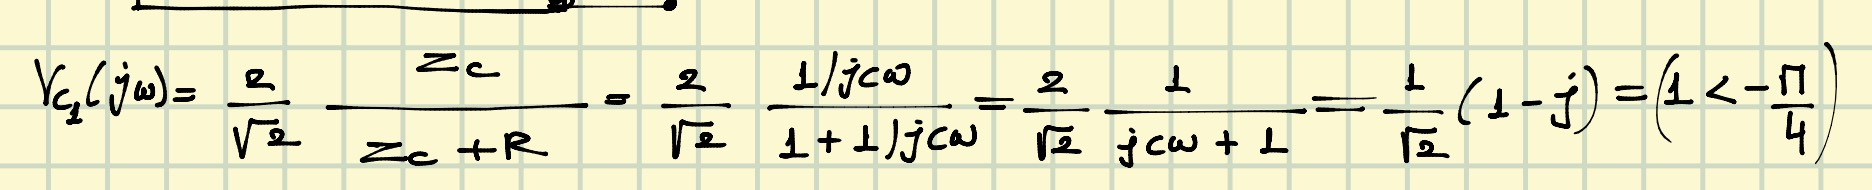 V_{C_1}(jω) = \frac{2}{\sqrt{2}} \frac{Z_C}{Z_C + R} = \frac{2}{\sqrt{2}} \frac{1/jcω}{1 + 1/jcω} = \frac{2}{\sqrt{2}} \frac{1}{jcω + 1} = \frac{1}{\sqrt{2}} (1 - j) = (1 < -\frac{π}{4})